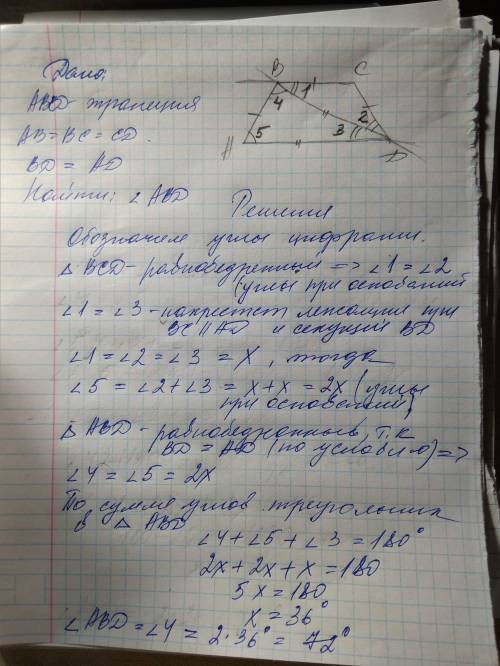 Дано:
ABCD-трапеция
AB=BC=CD.
BD = AD
Найти: ∠ABD
B
C
1
4
2
3
5
A
D
Решения
Обозначем углы цифрами.
△ BCD-равнобедренный => ∠1=∠2
(углы при оснований
∠1=∠3-накрест лежащие при
BC || AD и секущий BD
∠1=∠2=∠3 = x, тогда
∠5 = ∠2+∠3 = x+x = 2x (углы
при основании)
△ ABD-равнобедренный, т.к
BD = AD (по условию) =>
∠4=∠5 = 2x
По сумме углов треугольник
в △ ABD
∠4+∠5+∠3=180°
2x+2x+x=180
5x=180
x=36°
∠ABD=∠4= 2·36°= 72°